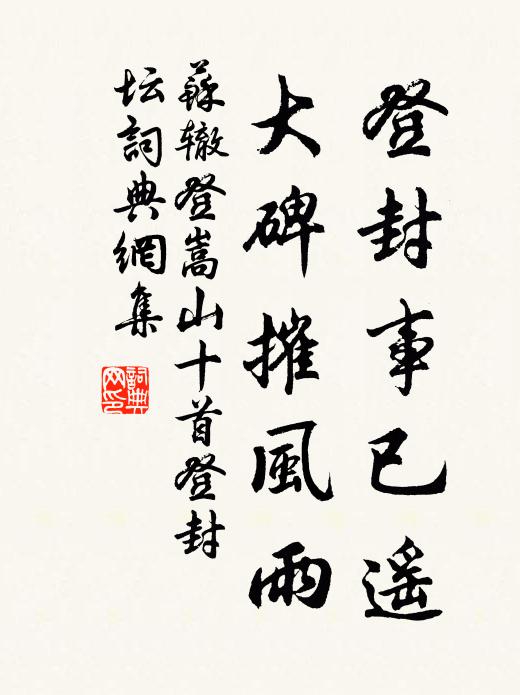 登封事已遥
大碑摧風雨
蘇辙登嵩山十首登封
坛詞典網集
詞典
网印